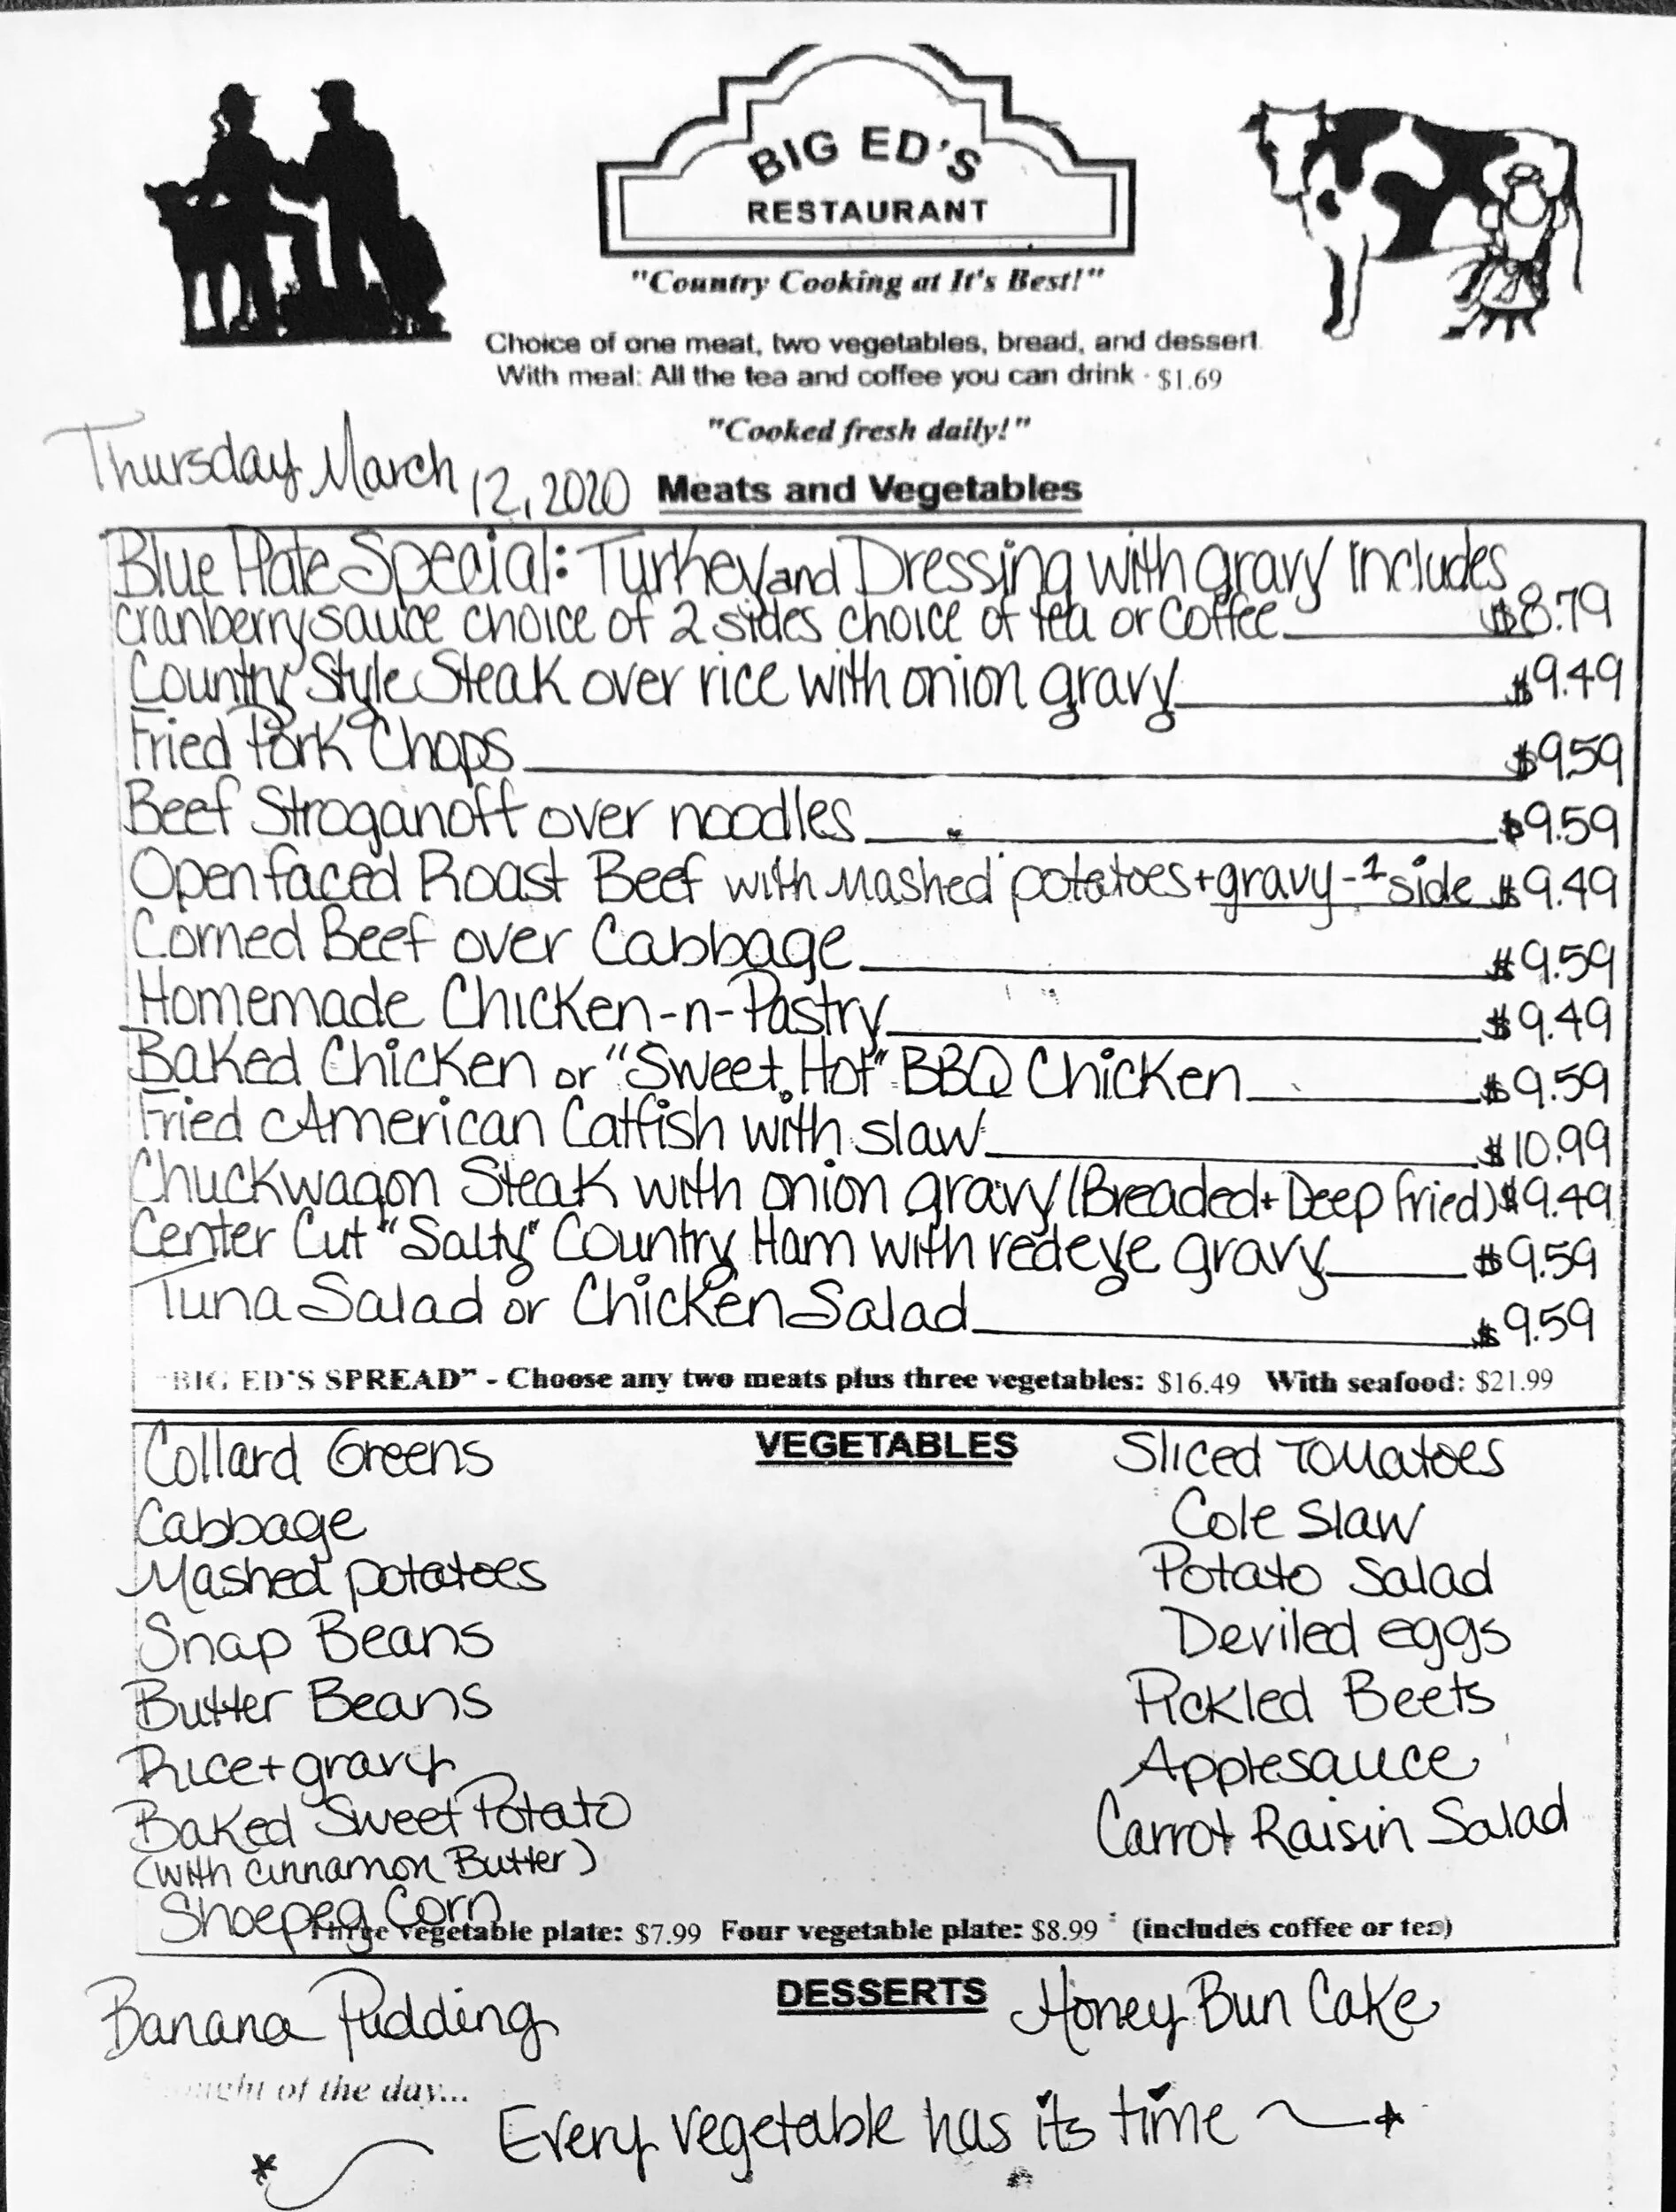 BIG ED'S
RESTAURANT
"Country Cooking at It's Best!"
Choice of one meat, two vegetables, bread, and dessert.
With meal: All the tea and coffee you can drink - $1.69
"Cooked fresh daily!"
Thursday March 12, 2020
Meats and Vegetables
Blue Plate Special: Turkey and Dressing with gravy includes
cranberry sauce choice of 2 sides choice of tea or coffee $8.79
Country Style Steak over rice with onion gravy $9.49
Fried Pork Chops $9.59
Beef Stroganoff over noodles $9.59
Open faced Roast Beef with Mashed potatoes + gravy - 1 side $9.49
Corned Beef over Cabbage $9.59
Homemade Chicken-n-Pastry $9.49
Baked Chicken or "Sweet, Hot" BBQ Chicken $9.59
Fried American Catfish with slaw $10.99
Chuckwagon Steak with onion gravy (Breaded + Deep fried) $9.49
Center Cut "Salty" Country Ham with redeye gravy $9.59
Tuna Salad or Chicken Salad $9.59
"BIG ED'S SPREAD" - Choose any two meats plus three vegetables: $16.49 With seafood: $21.99
VEGETABLES
Collard Greens
Cabbage
Mashed potatoes
Snap Beans
Butter Beans
Rice + gravy
Baked Sweet Potato
(with cinnamon Butter)
Shoepeg Corn
Sliced Tomatoes
Cole Slaw
Potato Salad
Deviled eggs
Pickled Beets
Applesauce
Carrot Raisin Salad
Three vegetable plate: $7.99 Four vegetable plate: $8.99 (includes coffee or tea)
DESSERTS
Banana Pudding
Honey Bun Cake
of the day...
Every vegetable has its time